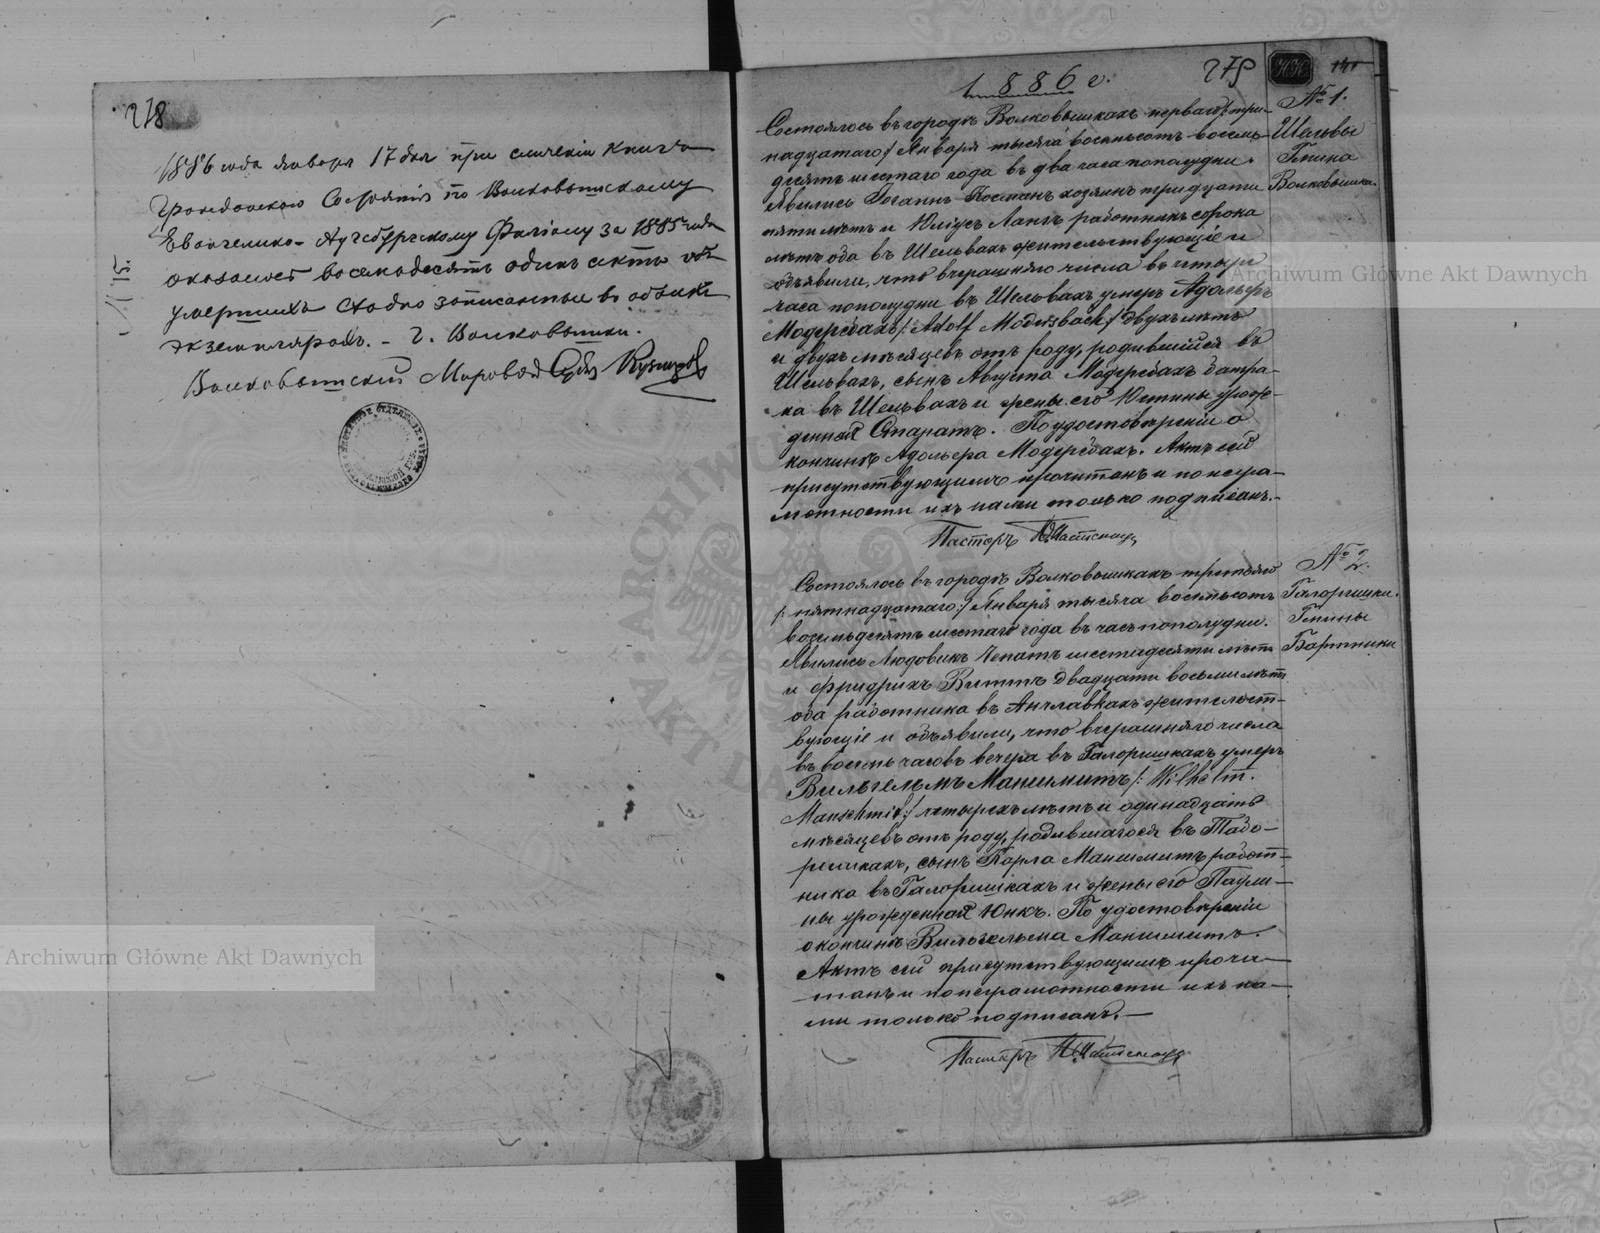 278
1886 года января 17 дня при сличении книги
Гражданского Состояния по Волковышскому
Евангелико-Аугсбургскому Филіалу за 1885 года
оказалось восемьдесятъ одинъ актъ объ
умершихъ сходно записанные въ обоихъ
экземплярахъ. - г. Волковышки.
Волковышскій Мировой Судья
1886 г.
279
№ 1.
Шельвы
Гмина
Волковышки
Состоялось въ городѣ Волковышкахъ перваго /три-
надцатаго/ Января тысяча восемьсотъ восемь-
десятъ шестаго года въ два часа пополудни.
Явились Іоганъ хозяинъ тридцати
пяти лѣтъ и Юліусъ Лангъ работникъ сорока
лѣтъ оба въ Шельвахъ жительствующіе и
объявили, что вчерашняго числа въ четыре
часа пополудни въ Шельвахъ умеръ Адольфъ
Модерсбахъ /: Adolf Modersbach / двухъ лѣтъ
и двухъ мѣсяцевъ отъ роду, родившійся въ
Шельвахъ, сынъ Августа Модерсбахъ батра-
ка въ Шельвахъ и жены его Юстины урож-
денной Старатъ. По удостовѣреніи о
кончинѣ Адольфа Модерсбахъ. Актъ сей
присутствующимъ прочитанъ и по негра-
мотности ихъ нами только подписанъ.-
Пасторъ
№ 2.
Галоришки.
Гмины
Бартники
Состоялось въ городѣ Волковышкахъ третьяго
/: пятнадцатаго:/ Января тысяча восемьсотъ
восемьдесятъ шестаго года въ часъ пополудни.
Явились Людовикъ шестидесяти лѣтъ
и Фридрихъ Виттъ двадцати восьми лѣтъ
оба работника въ Англавкахъ жительст-
вующіе и объявили, что вчерашняго числа
въ восемь часовъ вечера въ Галоришкахъ умеръ
Вильгельмъ Маншмитъ /: Wilhelm
Manschmit:/ четырехъ лѣтъ и одинадцать
мѣсяцевъ отъ роду, родившагося въ Табо-
ришкахъ, сынъ Карла Маншмитъ работ-
ника въ Галоришкахъ и жены его Паули-
ны урожденной Юнкъ. По удостовѣреніи
о кончинѣ Вильгельма Маншмитъ.
Актъ сей присутствующимъ прочи-
танъ и по неграмотности ихъ на-
ми только подписанъ.-
Пасторъ
Archiwum Główne Akt Dawnych
Archiwum Główne Akt Dawnych